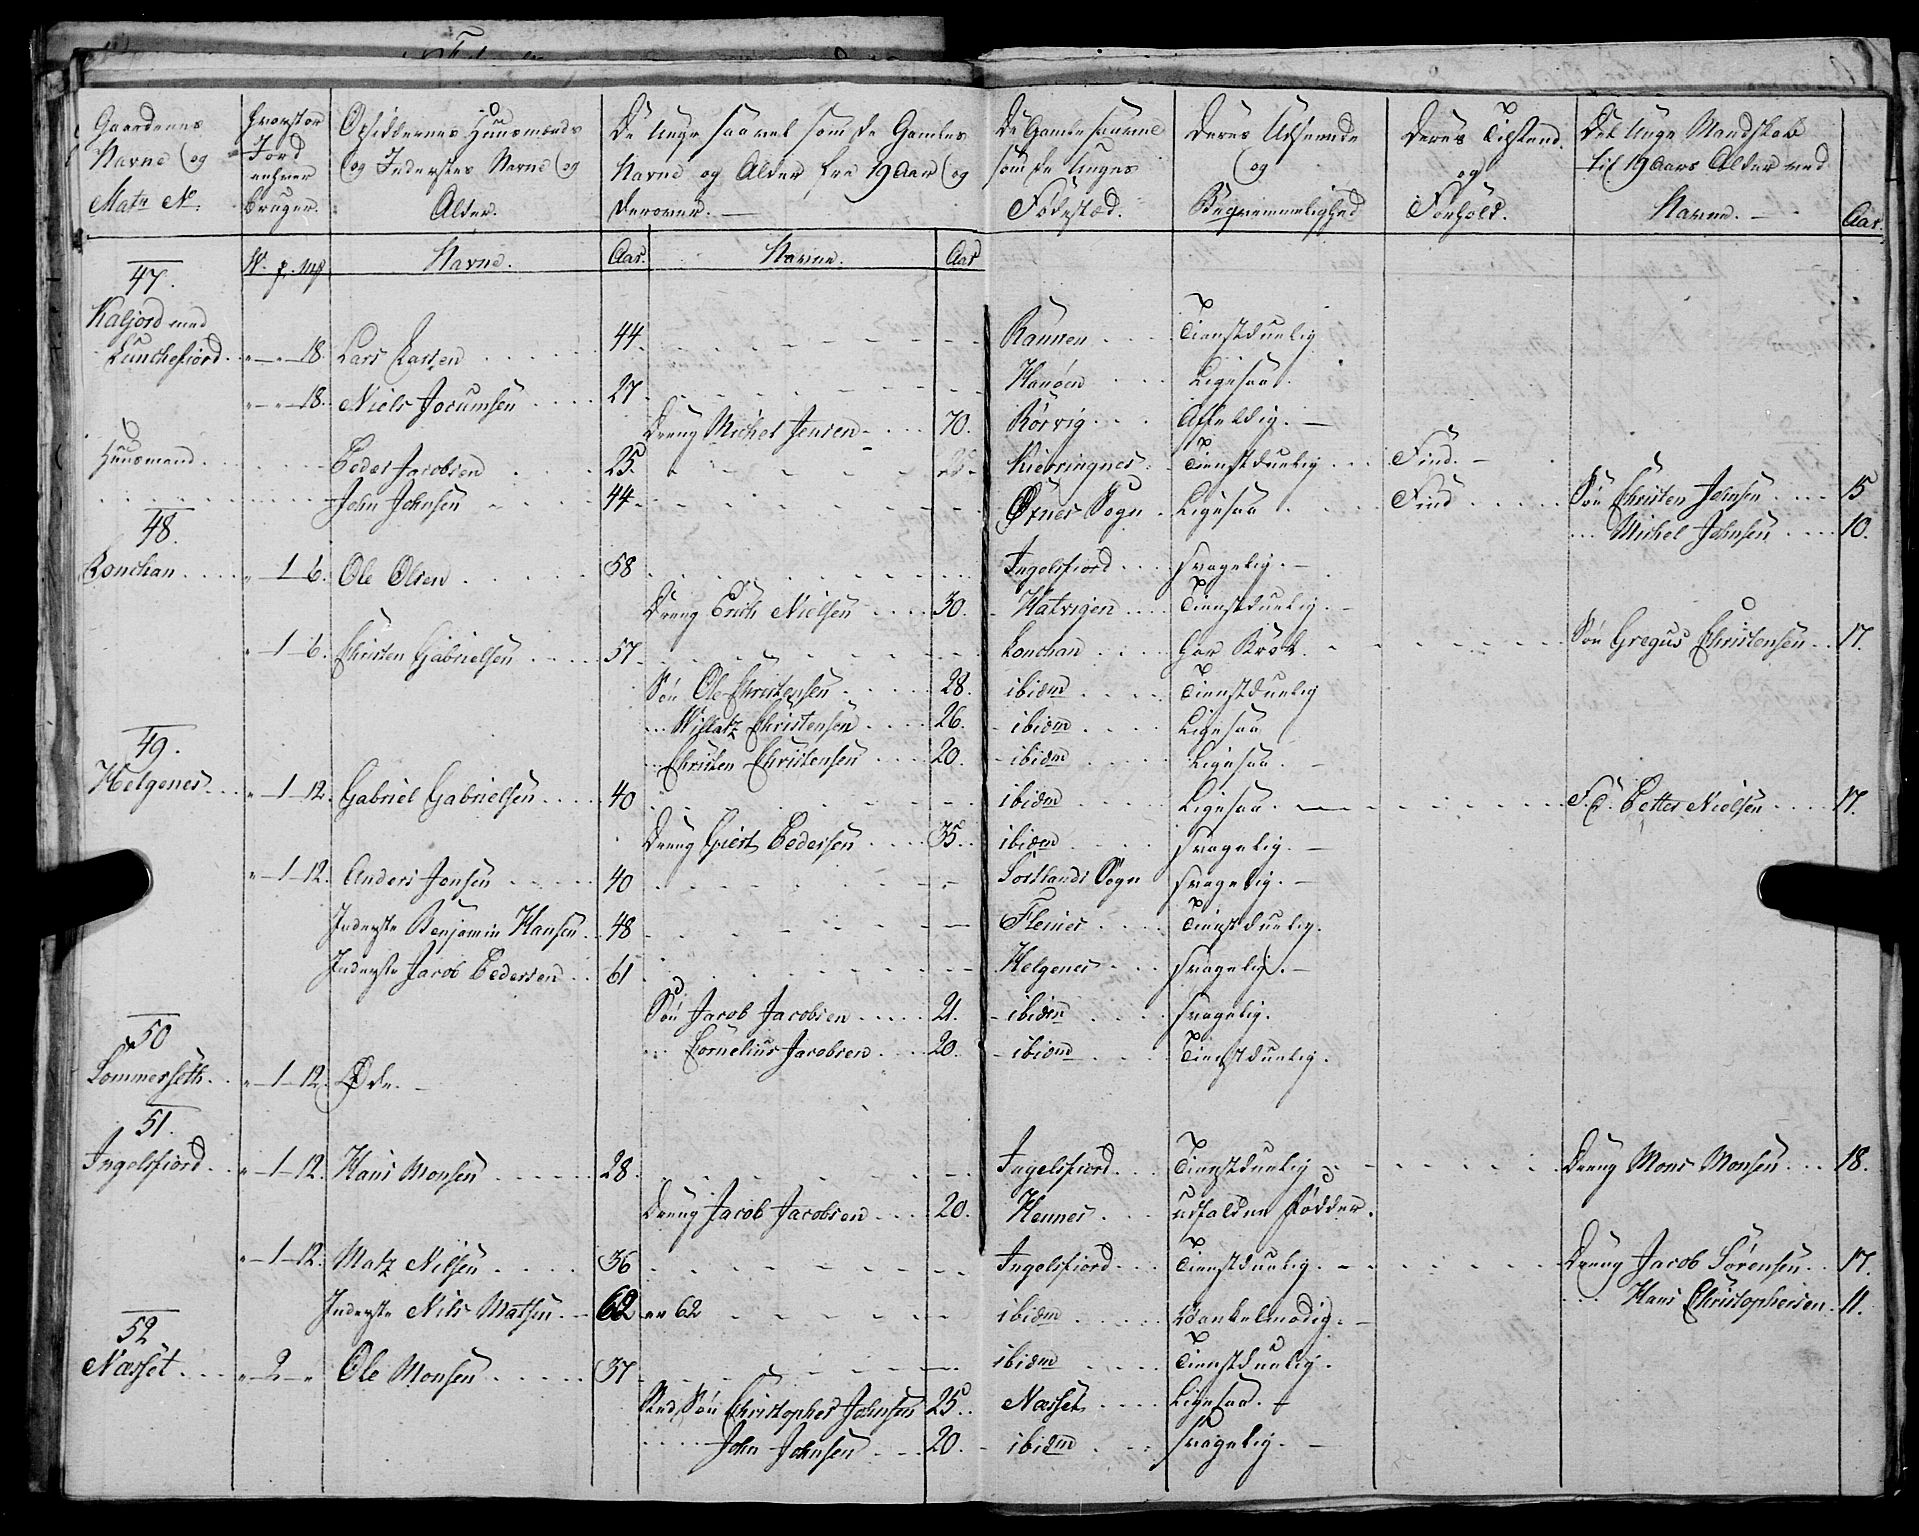 Gaardenes Navne og Matr No.
Hvorstor Jord enhver bruger.
Opsiddernes Huusmænds og Inderstes Navne og Alder.
De Unge saavel som de Gamles Navne og Alder fra 19 Aar og derover.
De Gamle saavel som de Unges Fødested.
Deres Udseende og Beqvemmelighed
Deres Tilstand og Forhold.
Det Unge Mandskab til 19 Aars Alder med Navne.
Aar.
W. p. mk Navne. Aar. Navne. Aar
47.
Kaljord med
Lunchefiord 18. Lars Larsen 44 Rannen Tienstduelig
18. Niels Jorumsen 27 Hanøen Ligesaa.
Dreng Michel Jensen 70. Rørvig Affeldig.
Huusmand Peder Jacobsen 25. Kierringnes Tienstduelig Find.
John Johnsen 44 Øxnes Sogn Ligesaa Find Søn Christen Johnsen 15
Michel Johnsen 10.
48.
Lonchan 1 6. Ole Olsen 58 Ingelsfiord svagelig.
Dreng Erich Nielsen 30. Hatvigen Tienstduelig.
1 6. Christen Gabrielsen 57 Lonchan har Brok Søn Gregus Christensen 17.
Søn Ole Christensen 28. ibidm Tienstduelig
Willatz Christensen 26. ibidm Ligesaa
Christen Christensen 20. ibidm Ligesaa.
49.
Helgenes 1 12. Gabriel Gabrielsen 40 ibidm Ligesaa. F.S. Petter Nielsen 17.
Dreng Giert Pedersen 35. ibidm svagelig.
1 12. Anders Jonsen 40 Sortlands Sogn svagelig.
Inderste Benjamin Hansen 48 Flenies Tienstduelig.
Inderste Jacob Pedersen 61 Helgenes svagelig.
Søn Jacob Jacobsen 21. ibidm svagelig.
Cornelius Jacobsen 20. ibidm Tienstduelig.
50
Sommerseth 1 12. Øde.
51.
Ingelsfiord 1 12. Hans Monsen 28 Ingelsfiord Tienstduelig Dreng Mons Monsen 18.
Dreng Jacob Jacobsen 20. Hennes udfaldne Fødder.
1 12. Matz Nilsen 36 Ingelsfiord Tienstduelig. Dreng Jacob Sørensen 17.
Inderste Nils Matsen 62 er 62 ibidm Vankelmodig. Hans Christophersen 11.
52
Næsset 2 Ole Monsen 37 ibidm Tienstduelig.
Sted Søn Christopher Johnsen 25. Næsset Ligesaa.
John Johnsen 20. ibidm svagelig.